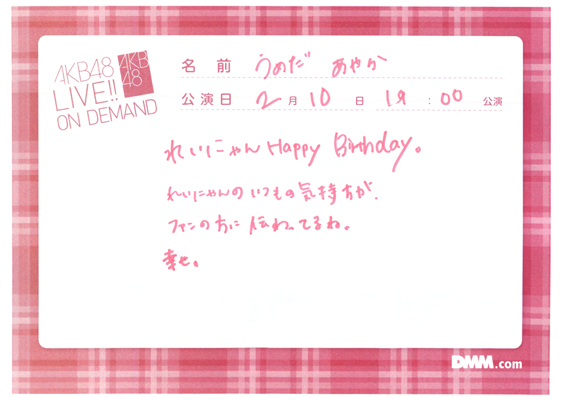 AKB48
LIVE!!
ON DEMAND
AKB
48
名 前 うめだ あやか
公演日 2 月 10 日 19 : 00 公演
れいにゃん Happy Birthday。
れいにゃんのいつもの気持ちが、
ファンの方に伝わってるね。
幸せ。
DMM.com